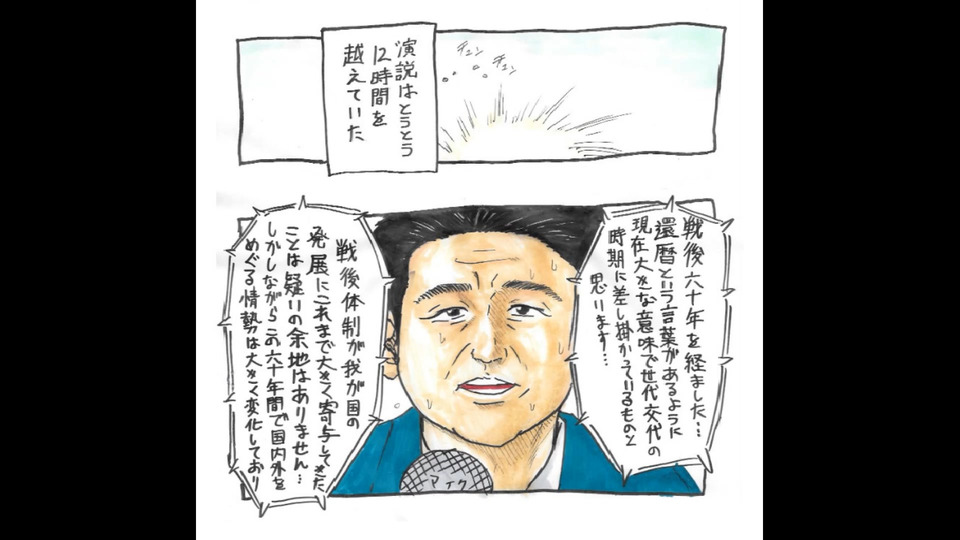 演説はとうとう
12時間を
越えていた
チュン
チュン
戦後六十年を経ました…
還暦という言葉があるように
現在大きな意味で世代交代の
時期に差し掛かっているものと
思います…
戦後体制が我が国の
発展にこれまで大きく寄与してきた
ことは疑いの余地はありません…
しかしながらこの六十年間で国内外を
めぐる情勢は大きく変化しており
マイク